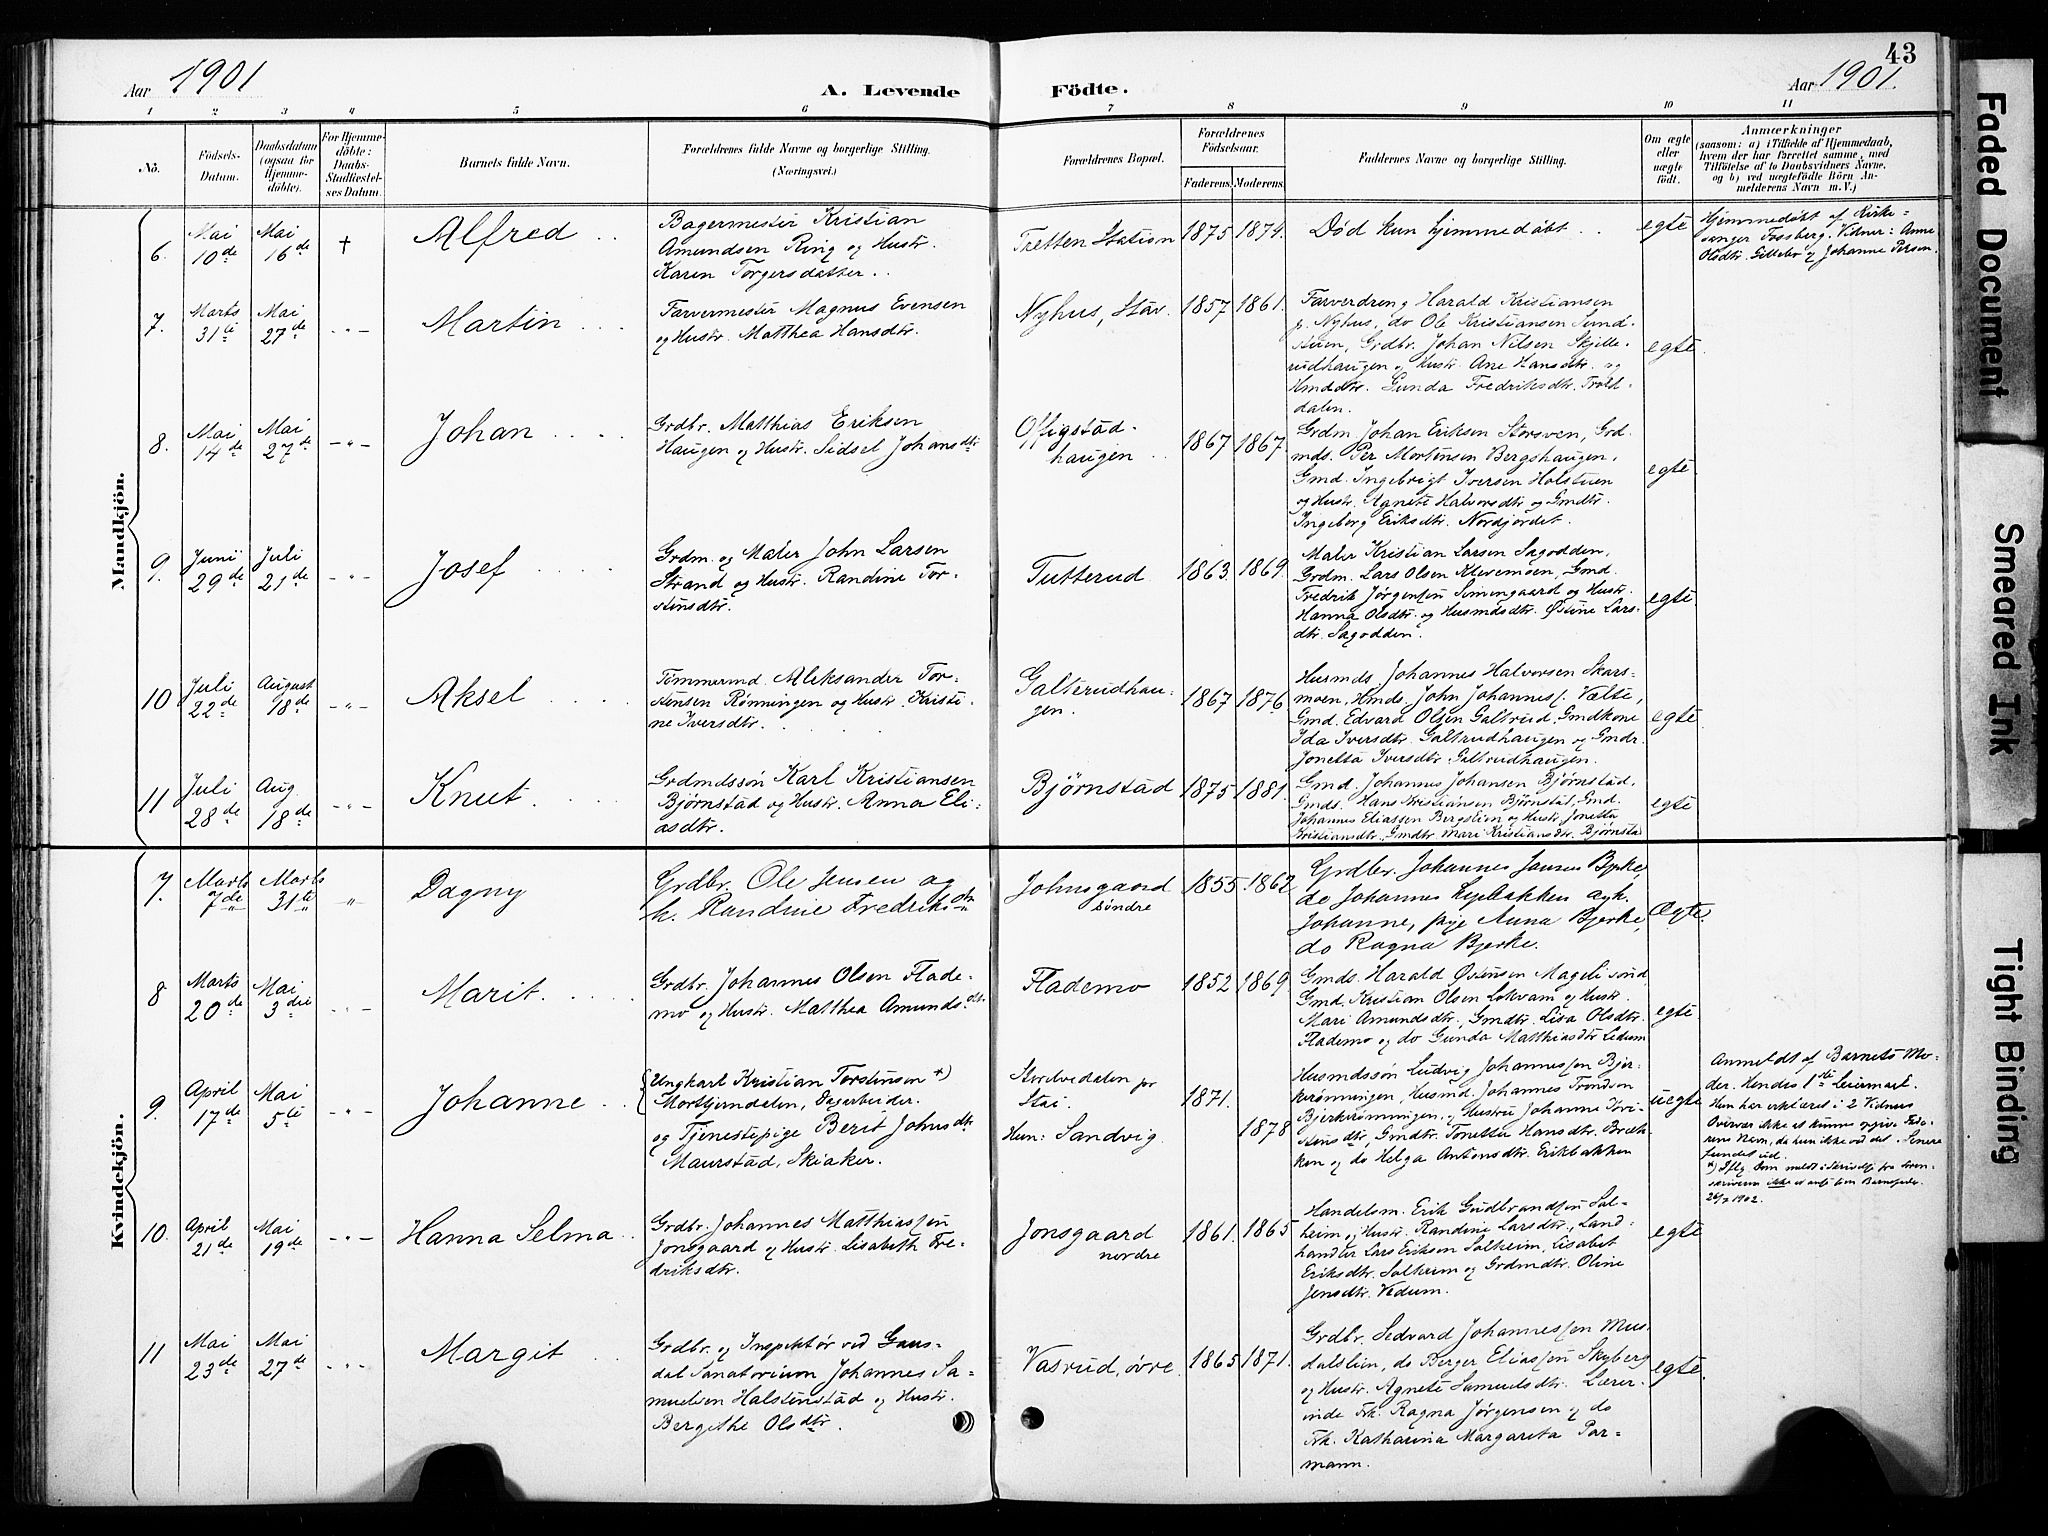 43
Aar 1901
A. Levende Födte.
Aar 1901.
1 2 3 4 5 6 7 8 9 10 11
No.
Födsels-
Datum.
Daabsdatum
(ogsaa for
Hjemme-
döbte).
For Hjemme-
döbte:
Daabs-
Stadfæstel-
ses Datum.
Barnets fulde Navn.
Forældrenes fulde Navne og borgerlige Stilling.
(Næringsvei.)
Forældrenes Bopæl.
Forældrenes
Födselsaar.
Faderens. Moderens.
Faddernes Navne og borgerlige Stilling.
Om ægte
eller
uægte
födt.
Anmærkninger
(saasom: a) i Tilfælde af Hjemmedaab,
hvem der har forrettet samme, med
Tilföielse af to Daabsvidners Navne,
og b) ved uægtefödte Börn An-
melderens Navn m. V.)
Mandkjön.
6. Mai 10de
Mai 16de
†
Alfred
Bagermester Kristian
Amundsen Ring og Hustr.
Karen Torgersdatter
Tretten Station
1875 1874.
Død kun hjemmedøbt
egte
Hjemmedøbt af Kirke-
sanger Fossberg. Vidner: Anne
Olsdtr. Gillebr og Johanne Persen.
7. Marts 31te
Mai 27de
Martin
Farvermester Magnus Evensen
og Hustr. Matthea Hansdtr.
Nyhus, Stav.
1857 1861.
Farverdreng Harald Kristiansen
p. Nyhus, do Ole Kristiansen Sund-
stuen, Grdbr. Johan Nilsen Skjelle-
rudhaugen og Hustr. Ane Hansdtr. og
Hmddtr. Gunda Fredriksdtr. Trolt-
dalen.
egte.
8. Mai 14de
Mai 27de
Johan
Grdbr. Matthias Eriksen
Haugen og Hustr. Sidsel Johansdtr
Offigstad-
haugen
1867 1867.
Grdm. Johan Eriksen Storsven, Grd.
mds. Per Mortensen Bergshaugen,
Gmd. Ingebrigt Iversen Holstuen
og Hustr. Agnete Halvorsdtr og Gmdtr.
Ingeborg Eriksdtr. Nordjordet.
egte
9. Juni 29de
Juli 21de
Josef
Grdm. og Maler John Larsen
Strand og Hustr. Randine Tor-
stensdtr.
Tutterud
1863. 1869.
Maler Kristian Larsen Sagodden,
Grdm. Lars Olsen Klevemoen, Gmd.
Fredrik Jørgensen Simengaard og Hustr.
Hanna Olsdtr. og Husmdsdtr. Østine Lars-
dtr. Sagodden.
egte.
10 Juli 22de
August 18de
Aksel
Tömmermd. Aleksander Tor-
stensen Rønningen og Hustr. Kristi-
ne Iversdtr.
Galterudhau-
gen.
1867 1876
Husmds. Johannes Halvorsen Skars-
moen, Hmds. John Johanness. Vælte,
Gmd. Edvard Olsen Galtrud, Gmdkone
Ida Iversdtr. Galtrudhaugen og Gmdr.
Jonetta Iversdtr. Galtrudhaugen.
egte
11 Juli 28de
Aug. 18de
Knut
Grdmdssøn Karl Kristiansen
Bjørnstad og Hustr. Anna Eli-
asdtr.
Bjørnstad
1875 1881.
Gmd. Johannes Johansen Bjørnstad,
Gmds. Hans Kristiansen Bjørnstad, Gmd.
Johannes Eliassen Bergslien og Hustr. Jonetta
Kristiansdtr., Gmdtr. Mari Kristiansdtr. Bjørnsta
egte
Kvindekjön.
7. Marts 7de
Marts 31te
Dagny
Grdbr. Ole Jensen og
h. Randine Fredriksdtr
Johnsgaard
søndre
1855. 1862
Grdbr. Johannes Jansen Bjerke,
do Johannes
Johanne, pige Anna Bjerke,
do Ragna Bjerke.
Ægte.
8 Marts 20de
Mai 3die
Marit.
Grdbr. Johannes Olsen Flade-
mo og Hustr. Matthea Amundsdtr.
Flademo
1852 1869
Gmds. Harald Østensen Mageli sönd,
Gmd. Kristian Olsen Lokvam og Hustr.
Mari Amundsdtr., Gmdtr. Lisa Olsdtr.
Flademo og do Gunda Matthiasdtr Lidum
egte.
9. April 17de
Mai 5te
Johanne
Ungkarl Kristian Torstensen *)
Morttjendalen, Dagarbeider.
og Tjenestepige Berit Johnsdtr
Maurstad, Skiaker.
Stordvedalen pr
Stai.
Hun: Sandvig.
1871. 1878
Husmdssøn Ludvig Johannessen Bjer-
kerønningen, Husmd. Johannes Trondsen
Bjerkerønningen, og Hustru Johanne Tori-
stensdtr., Gmdtr. Tonetta Hansdtr. Bræk-
ken og do Helga Antonsdtr. Erikbakken
uegte
Anmeldt af Barnets Mo-
der. Hendes 1ste Leiermaal.
Hun har erklæret i 2 Vidners
Overvær ikke at kunne opgive Fade-
rens Navn, da hun ikke ved det. Senere
fundet ud.
26/7 1902.
10. April 21de
Mai 19de
Hanna Selma
Grdbr. Johannes Matthiassen
Jonsgaard og Hustr. Lisabeth Fre-
driksdtr.
Jonsgaard
nordre
1861. 1865
Handelsm. Erik Gudbrandsen Sol-
heim og Hustr. Randine Larsdtr., Land-
handler Lars Eriksen Solheim, Lisabet
Eriksdtr. Solheim og Grdmdtr. Oline
Jensdtr. Vedum.
egte
11 Mai 23de
Mai 27de
Margit
Grdbr. og Inspektør ved Gaus-
dal Sanatorium Johannes Sa-
muelsen Halstenstad og Hustr.
Bergithe Olsdtr.
Vasrud, øvre.
1865 1871.
Grdbr. Sedvard Johannessen Mus-
dalslien, do Berger Eliassen Skyberg
og Hustr. Agnete Samuelsdtr. Lærer-
inde Frk. Ragna Jørgensen og do
Frk. Katharina Margareta Par-
mann.
egte
Faded Document
Smeared Ink
Tight Binding